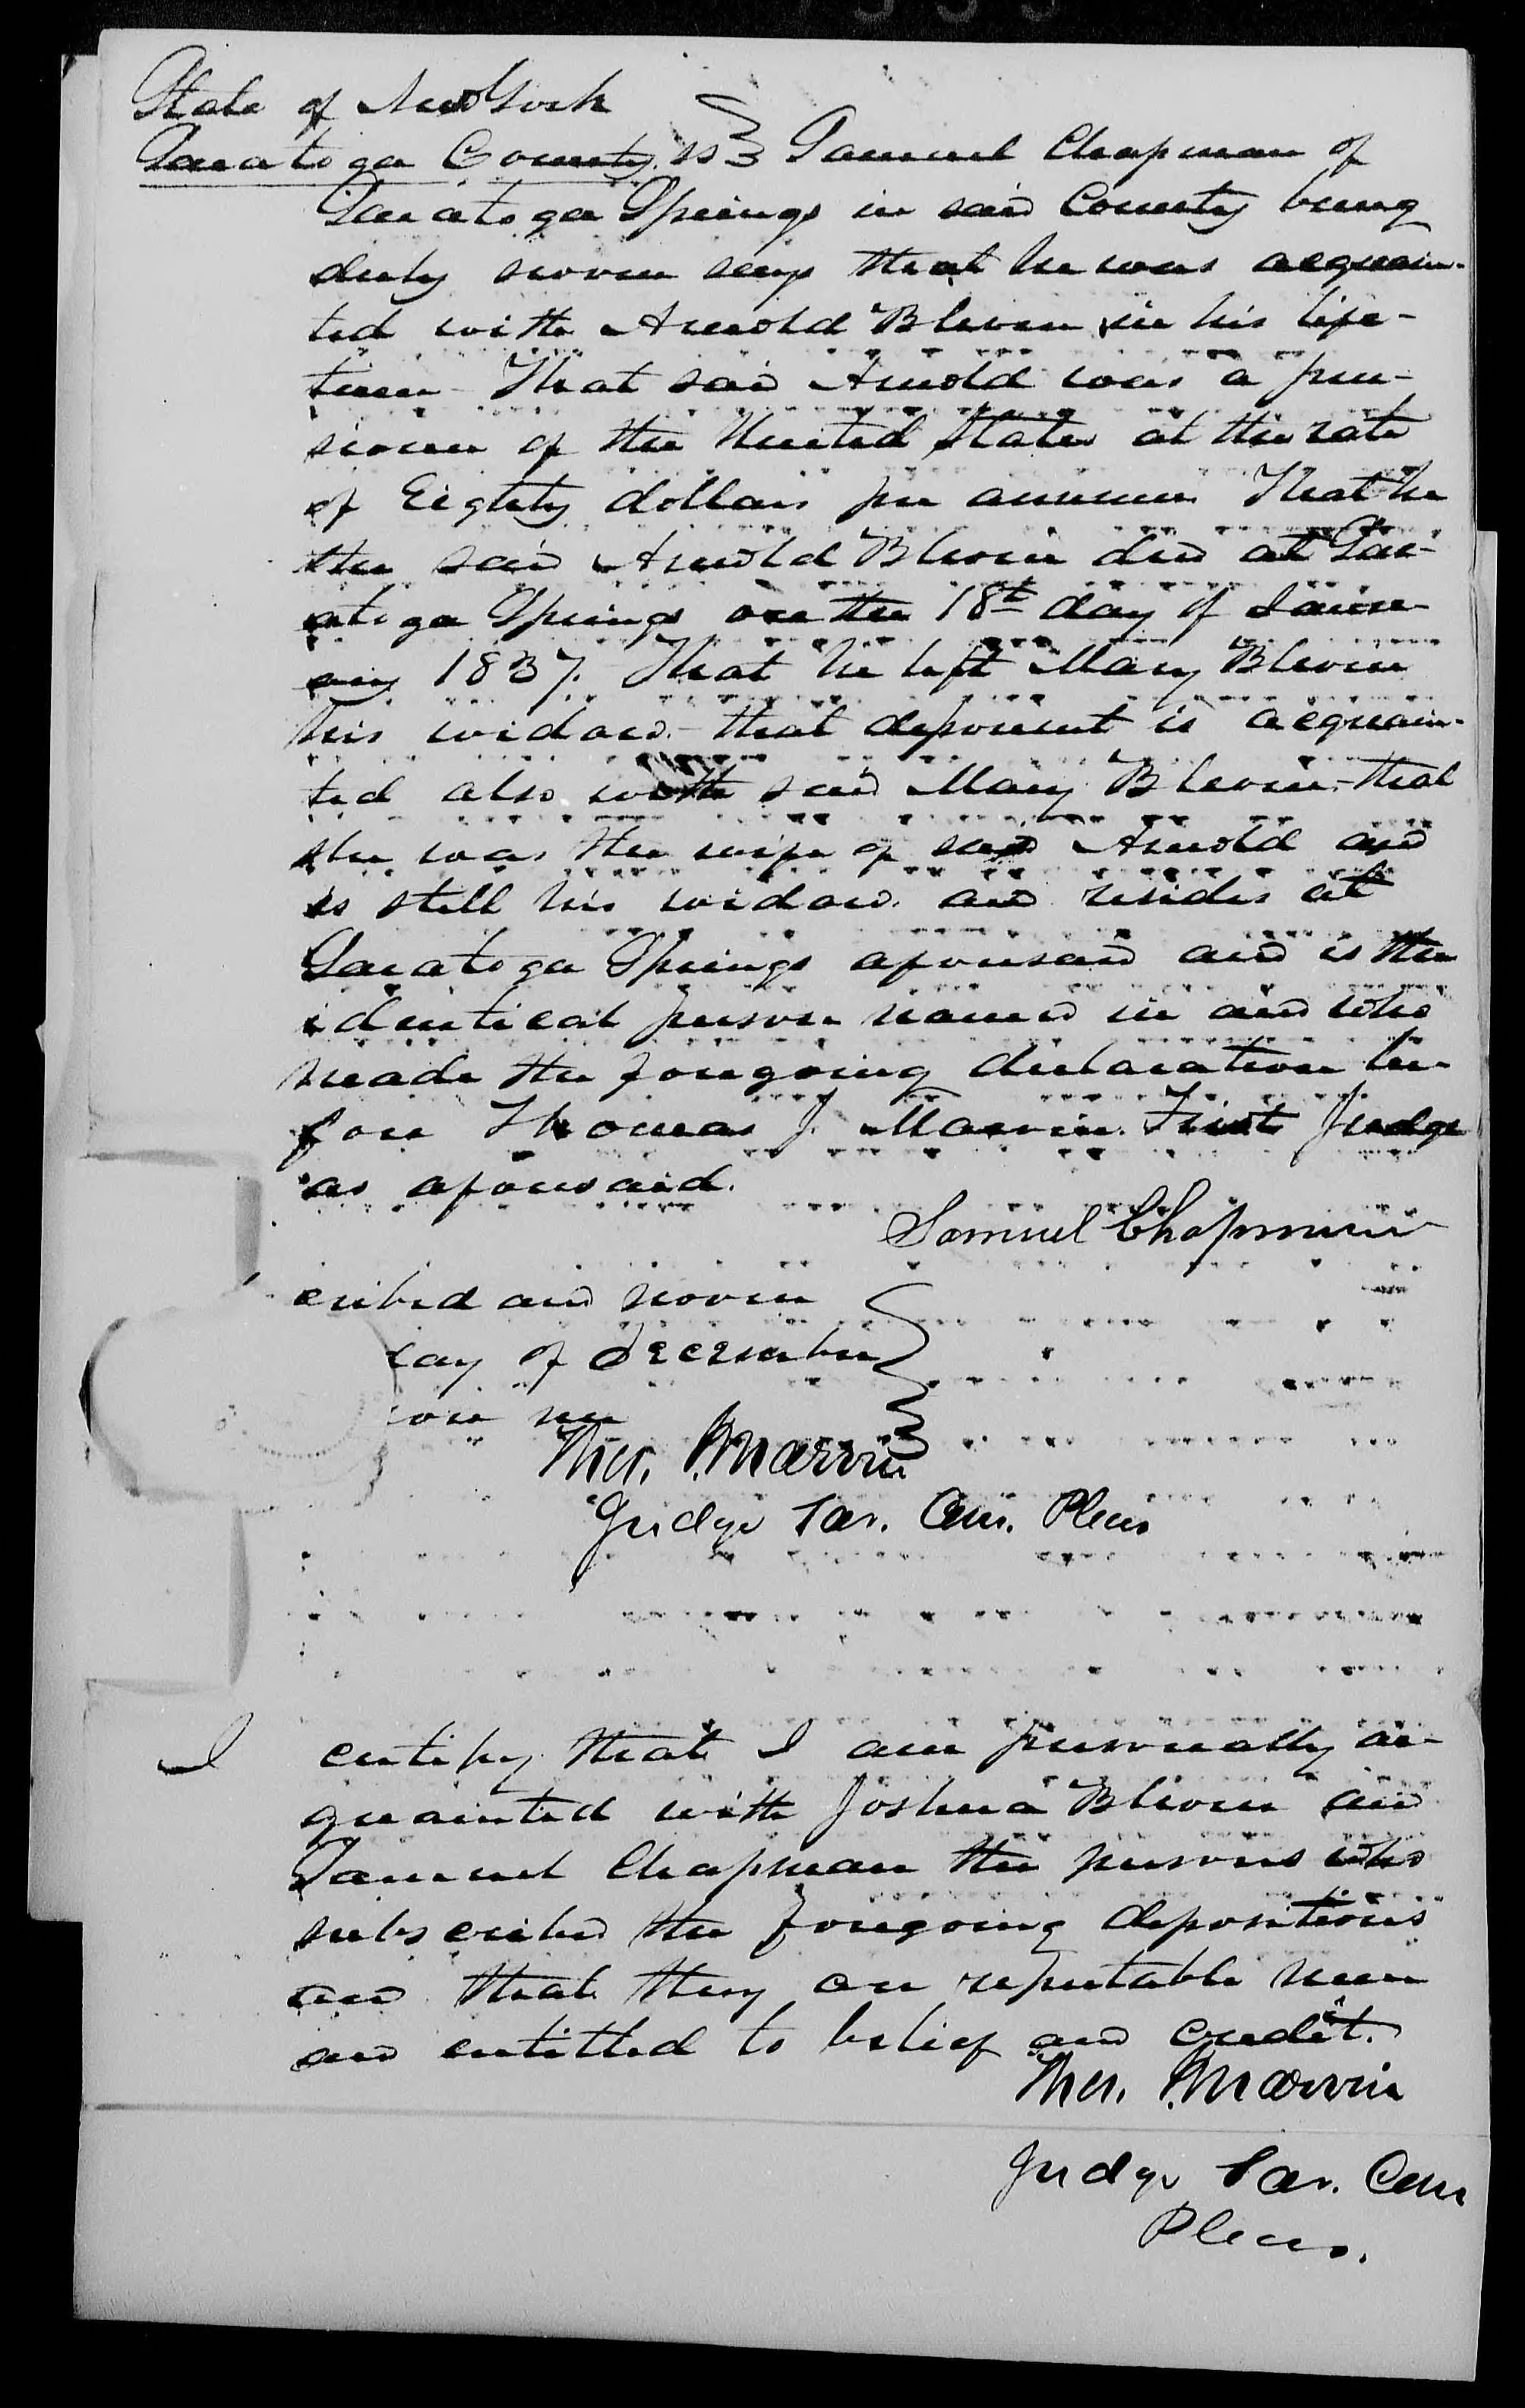 State of New York
Saratoga County, ss Samuel Chapman of
Saratoga Springs in said County being
duly sworn says that he was acquain-
ted with Arnold Bleven in his life-
time - That said Arnold was a pen-
sioner of the United States at the rate
of Eighty dollars per annum That he
the said Arnold Bleven died at Sar-
atoga Springs on the 18th day of Janu-
ary 1837. That he left Mary Bleven
his widow - that deponent is acquain-
ted also with said Mary Bleven - that
she was the wife of said Arnold and
is still his widow and resides at
Saratoga Springs aforesaid and is the
identical person named in and who
made the foregoing declaration be-
fore Thomas J. Marvin First Judge
as aforesaid.
Samuel Chapman
cribed and sworn
day of December
ore me
Tho. J. Marvin
Judge Sar. Com. Pleas
I certify that I am personally ac-
quainted with Joshua Bleven and
Samuel Chapman the persons who
subscribed the foregoing depositions
and that they are reputable men
and entitled to belief and credit.
Tho. J. Marvin
Judge Sar. Com
Pleas.